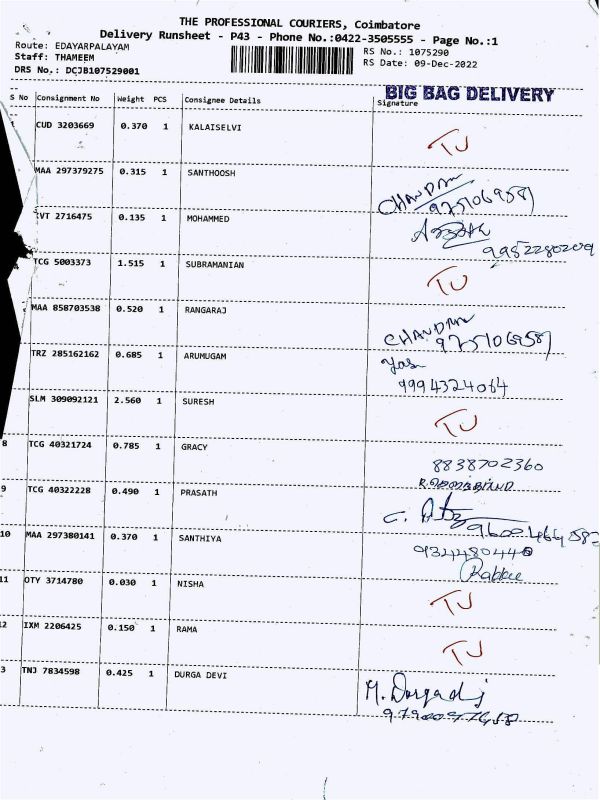 THE PROFESSIONAL COURIERS, Coimbatore
Delivery Runsheet - P43 - Phone No.:0422-3505555 - Page No.:1
Route: EDAYARPALAYAM
Staff: THAMEEM
DRS No.: DCJB107529001
RS No.: 1075290
RS Date: 09-Dec-2022
BIG BAG DELIVERY
S No Consignment No Weight PCS Consignee Details Signature
CUD 3203669 0.370 1 KALAISELVI TU
MAA 297379275 0.315 1 SANTHOOSH
9751069581
2716475 0.135 1 MOHAMMED
9952280209
TCG 5003373 1.515 1 SUBRAMANIAN TU
MAA 858703538 0.520 1 RANGARAJ
9751069581
TRZ 285162162 0.685 1 ARUMUGAM
9994324064
SLM 309092121 2.560 1 SURESH TU
8 TCG 40321724 0.785 1 GRACY 8838702360
9 TCG 40322228 0.490 1 PRASATH
10 MAA 297380141 0.370 1 SANTHIYA
11 OTY 3714780 0.030 1 NISHA TU
12 IXM 2206425 0.150 1 RAMA TU
3 TNJ 7834598 0.425 1 DURGA DEVI